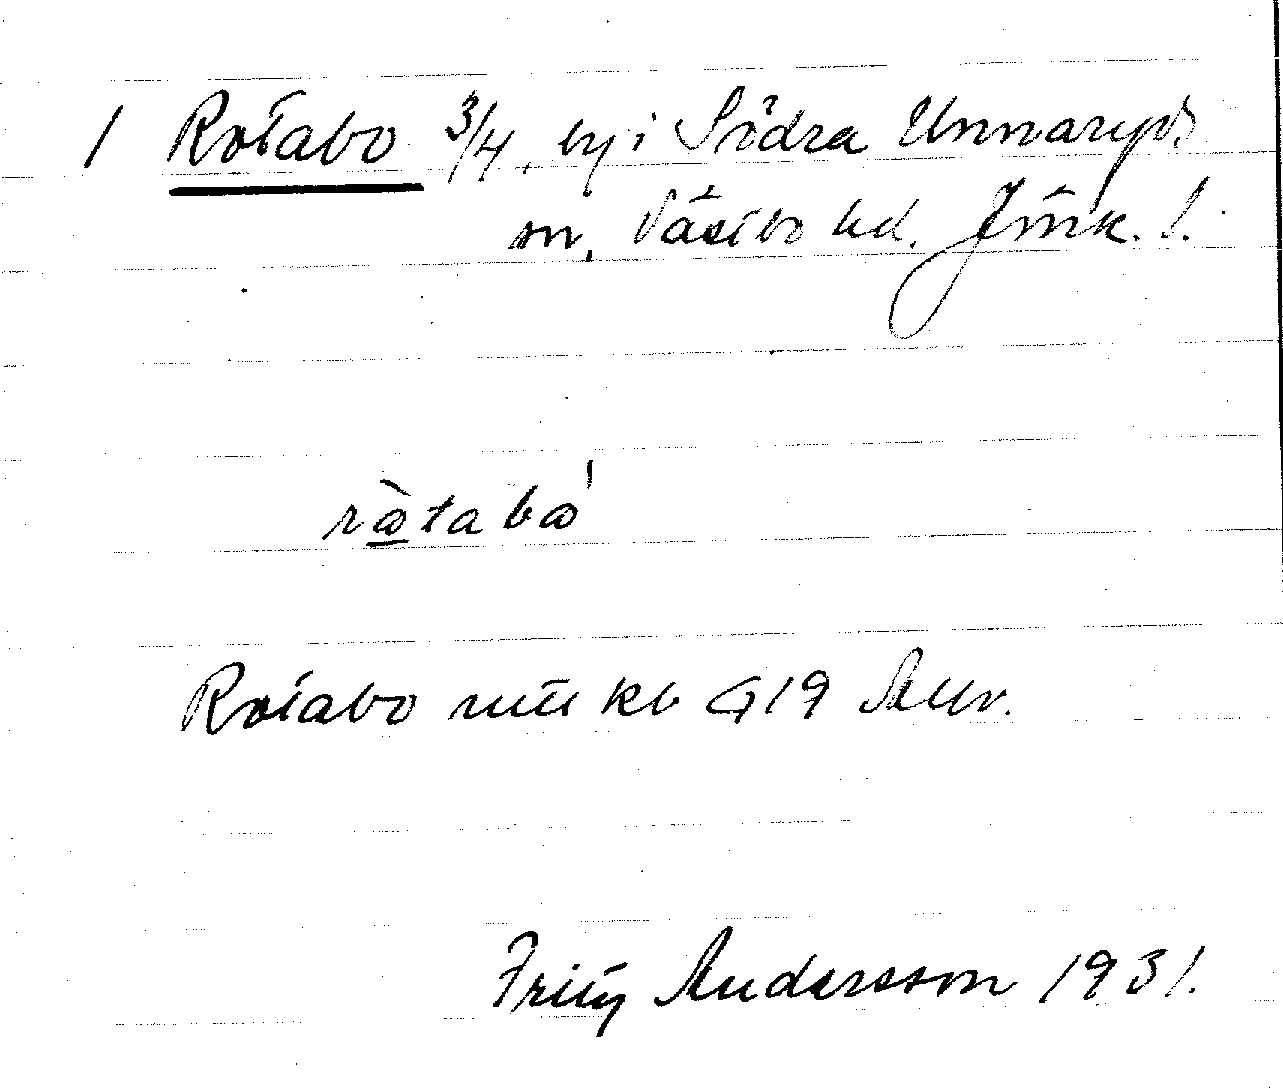 1 Rotabo 3/4, by i Södra Unnaryds
sn, Västbo hd. Jönk. l.
ràtabá
Rotabo nttt kb G19
Fritz Andersson 1931.